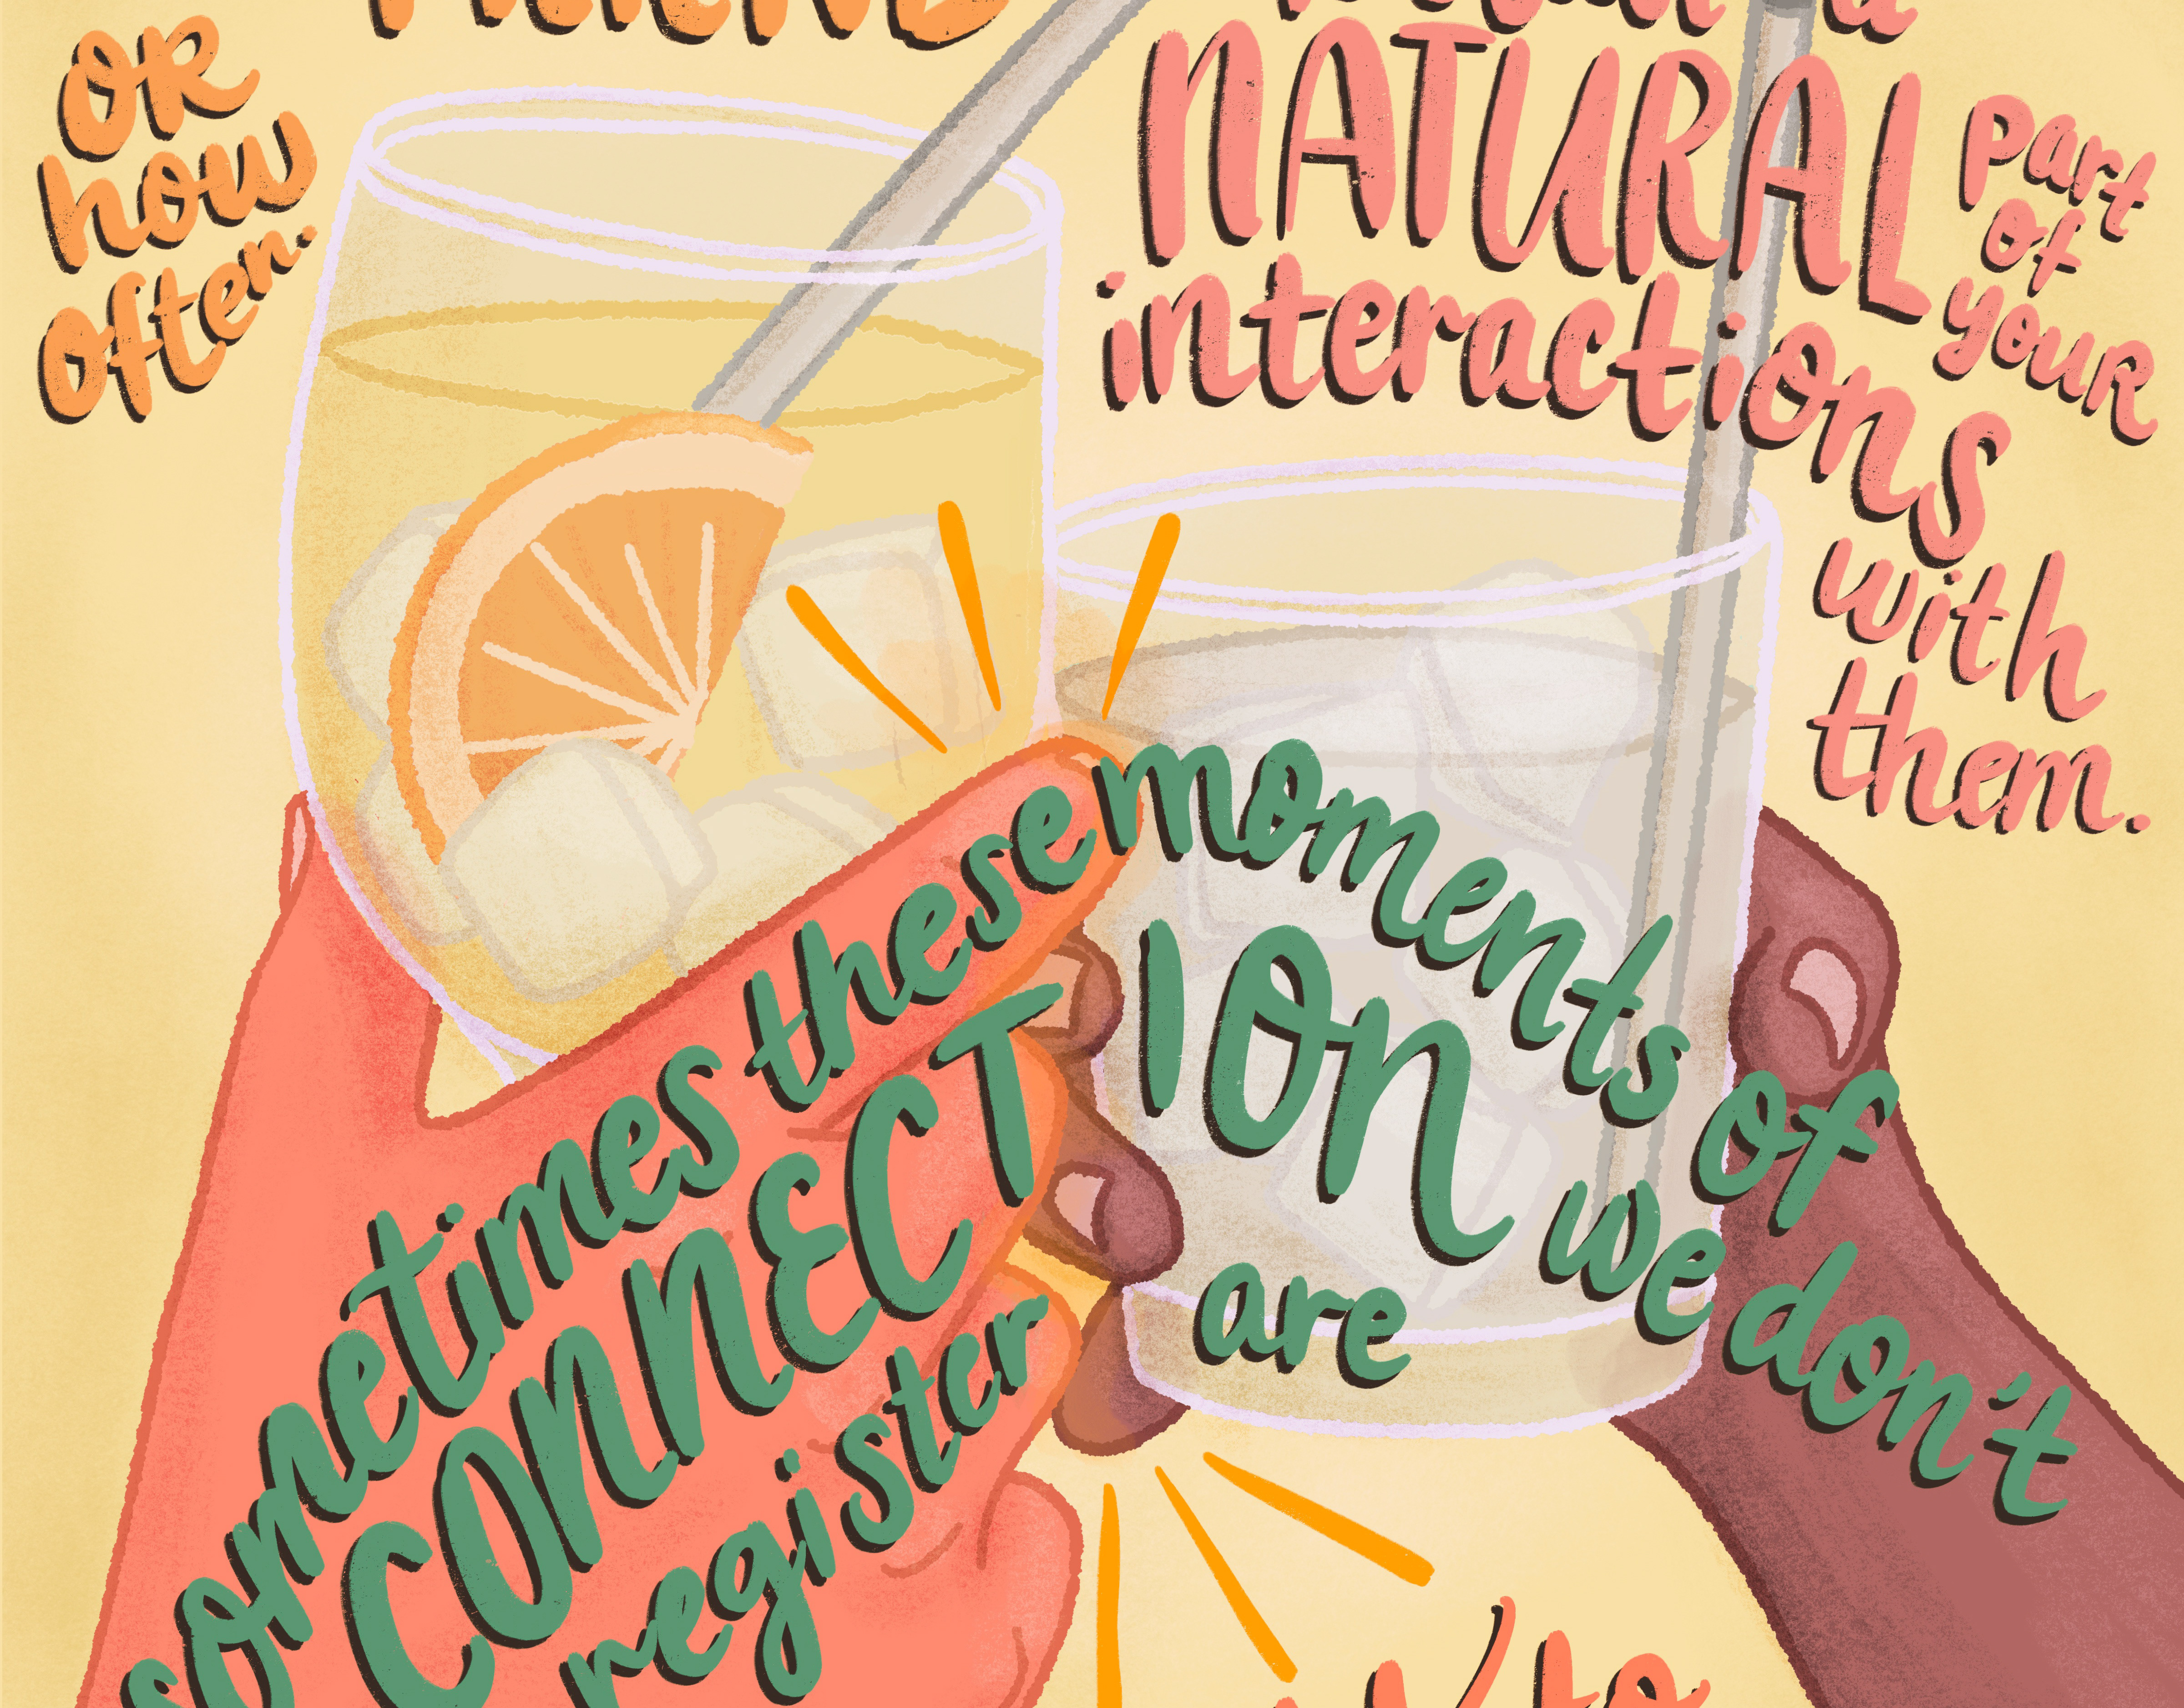 OR
how
often.
NATURAL
part
of
youR
interactions
with
them.
sometimes these moments of
CONNECTION we don't
register are
to